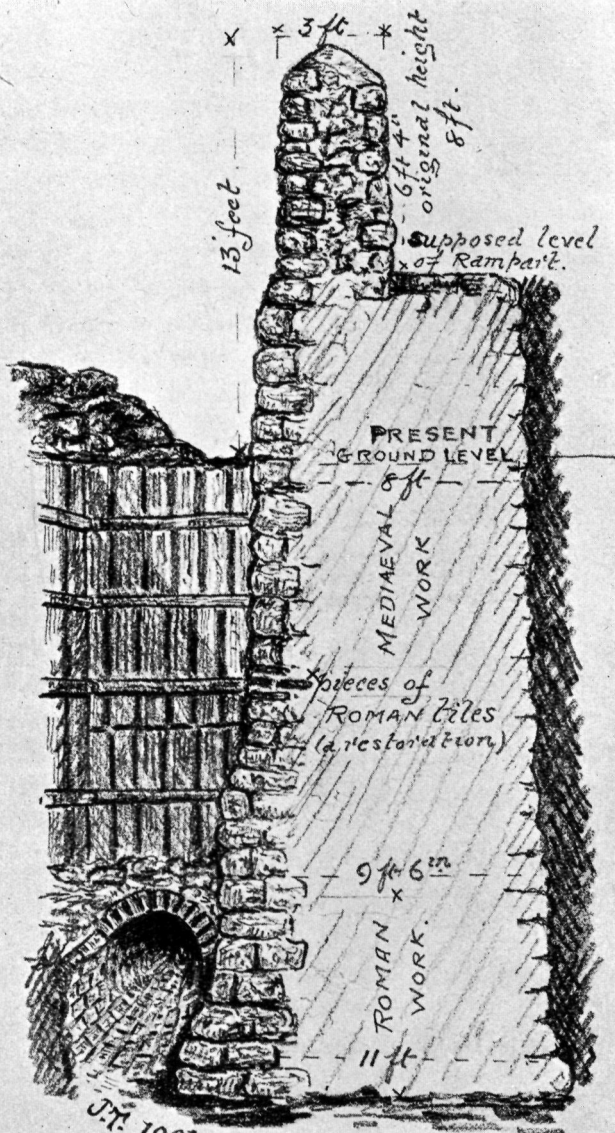 3 ft
13 feet
6 ft 4"
original height
8 ft.
Supposed level
of Rampart.
PRESENT
GROUND LEVEL
8 ft
MEDIAEVAL
WORK
pieces of
ROMAN tiles
(a restoration)
9 ft 6 in
ROMAN
WORK.
11 ft
J.T.